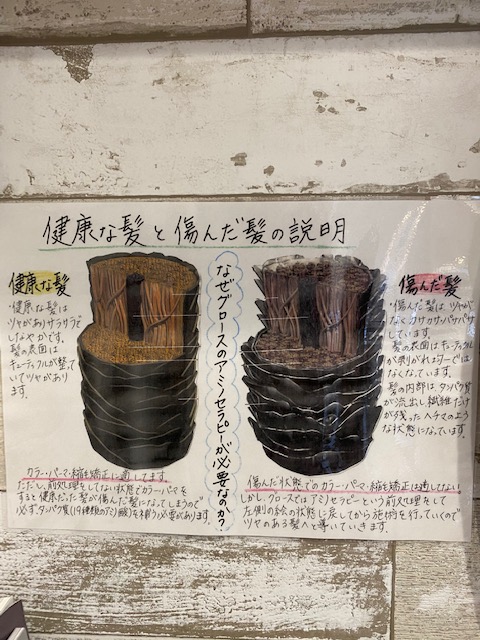 健康な髪と傷んだ髪の説明
健康な髪
・健康な髪は
ツヤがありサラサラで
しなやかです。
髪の表面は
キューティクルが整っ
ていてツヤがあり
ます。
なぜグロースのアミノセラピーが必要なのか?
傷んだ髪
・傷んだ髪はツヤが
なくカサカサ・パサパサ
しています。
髪の表面はキューティクル
が剥がれまわりーでは
なくなています。
髪の内部は、タンパク質
が流出し繊維だけ
が残ったヘチマのよう
な状態になっています。
カラー・パーマ・縮毛矯正に適してます。
ただし、前処理をしてない状態でカラー・パーマを
すると健康だった髪が傷んだ髪になってしまうので
必ず、タンパク質(19種類のアミノ酸)を補う必要があります。
傷んだ状態でのカラー・パーマ・縮毛矯正は適してない
しかし、グロースではアミノセラピーという前処理をして
左側の絵の状態に戻してから施術を行っていくので
ツヤのある髪へと導いていきます。